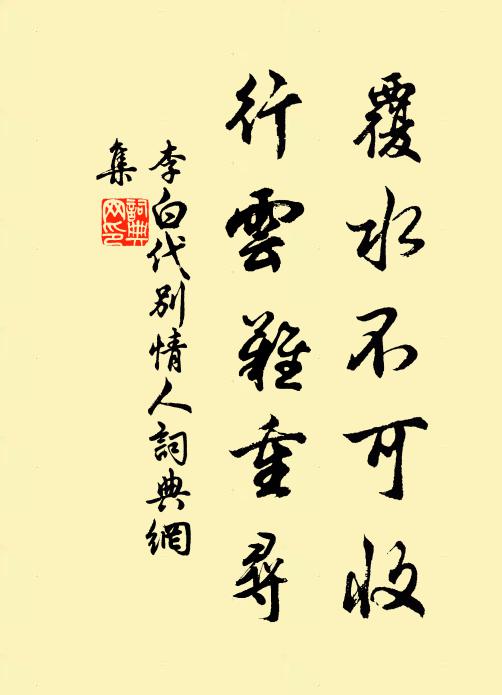 覆水不可收
行雲難重尋
李白代別情人詞典網
集
詞典
网印